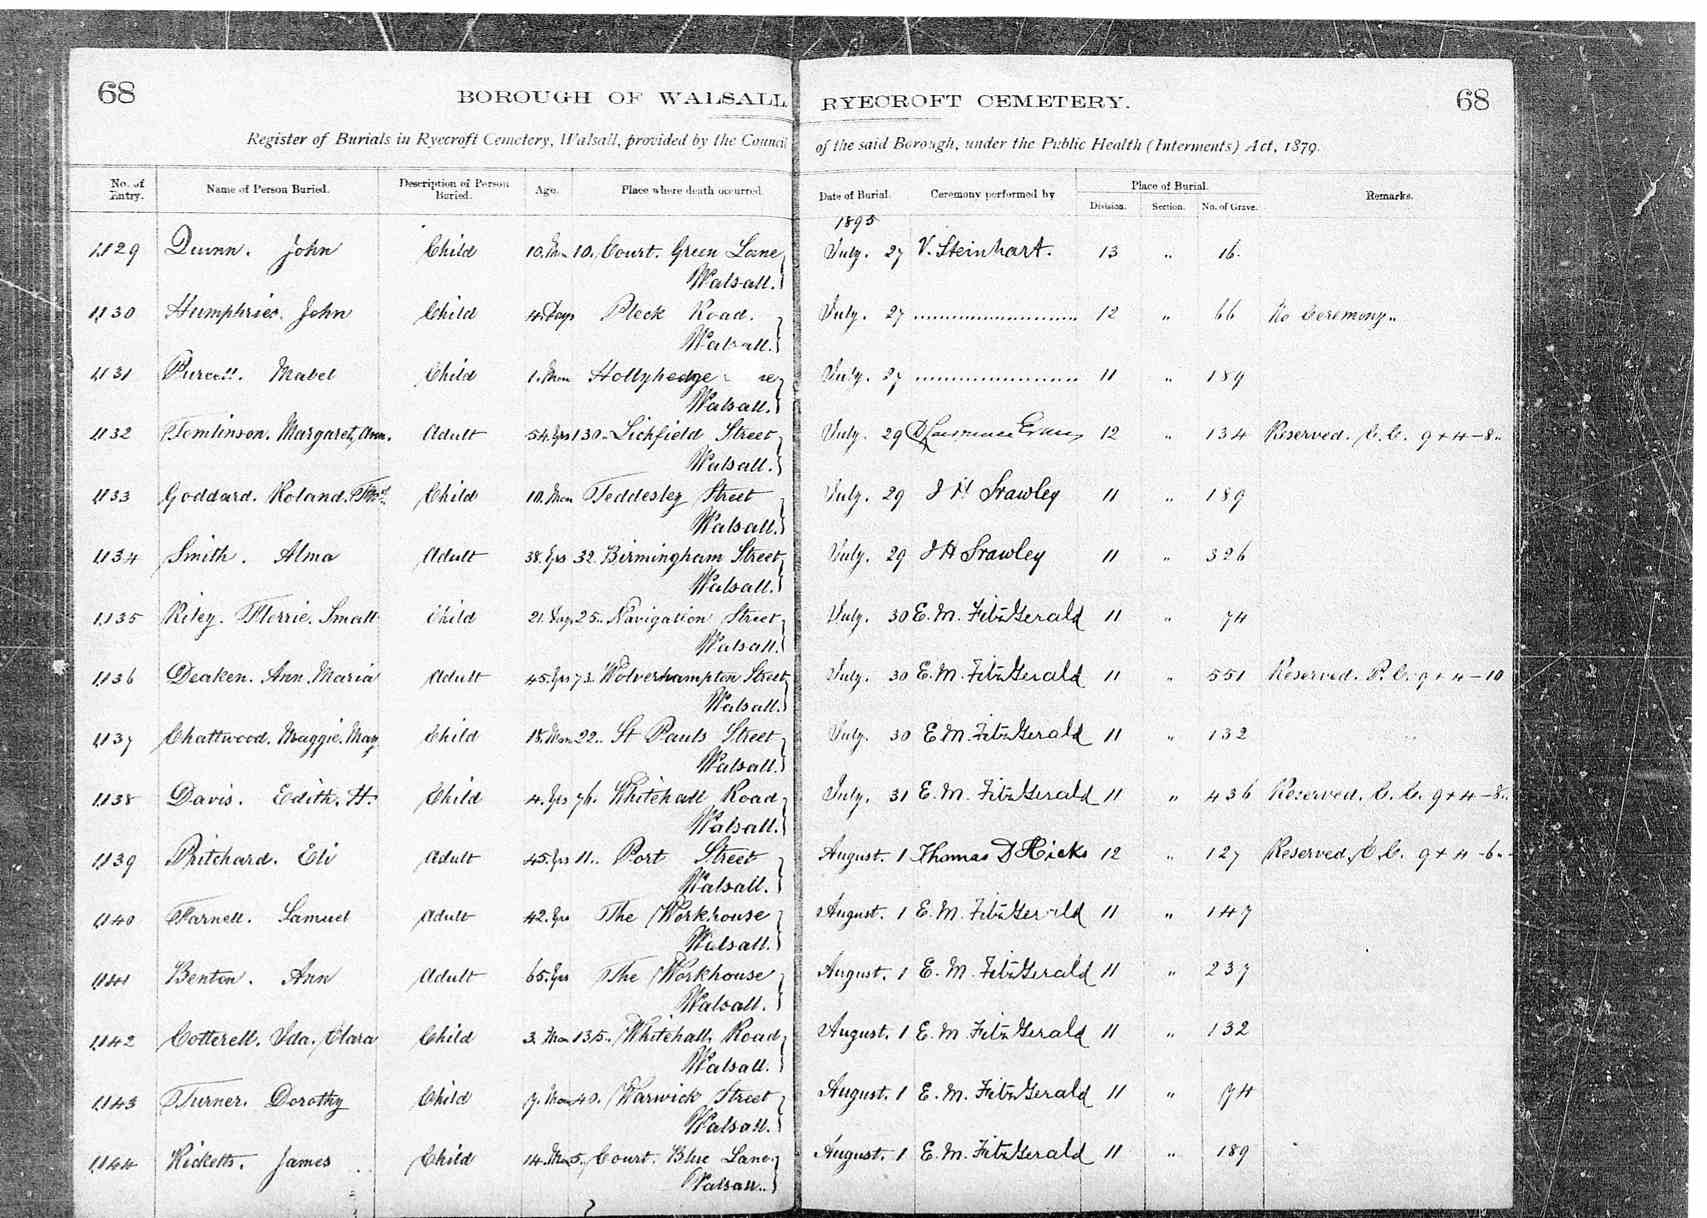 68
BOROUGH OF WALSALL
RYECROFT CEMETERY.
68
Register of Burials in Ryecroft Cemetery, Walsall, provided by the Council
of the said Borough, under the Public Health (Interments) Act, 1879.
No. of Entry. Name of Person Buried. Description of Person Buried. Age. Place where death occurred. Date of Burial. Ceremony performed by Place of Burial. Remarks.
Division. Section. No. of Grave.
1895
1,129 Quinn. John Child 10. Mon 10. Court. Green Lane July. 27 V. Steinhart. 13 „ 16.
Walsall.
1,130 Humphries. John Child 4. Days Pleck Road. July. 27 12 „ 66 No Ceremony„
Walsall.
1,131 Purcell. Mabel Child 1. Mon Hollyhedge July. 27 11 „ 189
Walsall.
1,132 Tomlinson. Margaret, Ann. Adult 54. Yrs 130.. Lichfield Street July. 29 D Lawrence Evans 12 „ 134 Reserved. C. C. 9 + 4 - 8..
Walsall.
1,133 Goddard. Roland. Thos. Child 10. Mon Teddesley Street July. 29 J H Srawley 11 „ 189
Walsall.
1,134 Smith. Alma Adult 38. Yrs 32. Birmingham Street July. 29 J H Srawley 11 „ 326
Walsall.
1,135 Riley. Florrie. Small Child 21. Days 25.. Navigation Street July. 30 E. M. FitzGerald 11 „ 74
Walsall.
1,136 Deaken. Ann. Maria Adult 45. Yrs 73. Wolverhampton Street July. 30 E. M. FitzGerald 11 „ 551 Reserved. P. C. 9 + 4 - 10
Walsall.
1,137 Chattwood. Maggie. May Child 18. Mon 22.. St Pauls Street July. 30 E M. FitzGerald 11 „ 132
Walsall.
1,138 Davis. Edith. H. Child 4. Yrs 76. Whitehall Road July. 31 E. M. FitzGerald 11 „ 436 Reserved. C. C. 9 + 4 - 8..
Walsall.
1,139 Pritchard. Eli Adult 45. Yrs 11.. Port Street August. 1 Thomas D Hicks 12 „ 127 Reserved. C. C. 9 + 4 - 6..
Walsall.
1,140 Farnell. Samuel Adult 42. Yrs The Workhouse August. 1 E. M. FitzGerald 11 „ 147
Walsall.
1,141 Benton. Ann Adult 65. Yrs The Workhouse August. 1 E. M. FitzGerald 11 „ 237
Walsall.
1,142 Cotterell. Ida. Clara Child 3. Mon 135.. Whitehall. Road August. 1 E. M. FitzGerald 11 „ 132
Walsall.
1,143 Turner. Dorothy Child 7. Mon 40. Warwick Street August. 1 E. M. FitzGerald 11 „ 74
Walsall.
1,144 Ricketts. James Child 14. Mon 5. Court. Blue Lane. August. 1 E. M. FitzGerald 11 „ 189
Walsall.